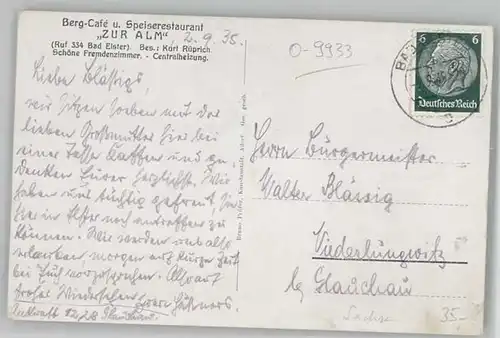 Berg-Café u. Speiserestaurant
„ZUR ALM",
(Ruf 334 Bad Elster). Bes.: Kurt Rüprich.
Schöne Fremdenzimmer. - Centralheizung.
2.9.35.
Liebe Blässigs,
wir sitzen soeben mit der
lieben Großmutter hier bei
einer Tasse Kaffee und ge-
denken Eurer herzlichst. Wir
haben uns tüchtig gefreut, Sie
hier in Elster noch antreffen zu
können. Wir werden uns also
erlauben morgen auf kurze Zeit
bei Euch vorzusprechen. Also auf
frohes Wiedersehen
O-9933
6 6
Deutsches Reich
Herrn Bürgermeister
Walter Blässig
Niederlungwitz
b/ Glauchau
Sachsen
35.-